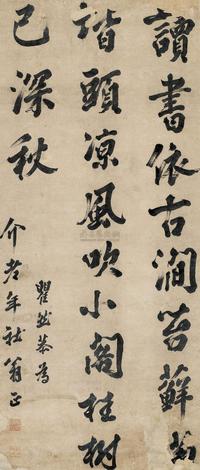 讀書依古澗苔蘚
頭涼風吹小閣桂樹
已深秋
為
介老年社翁正